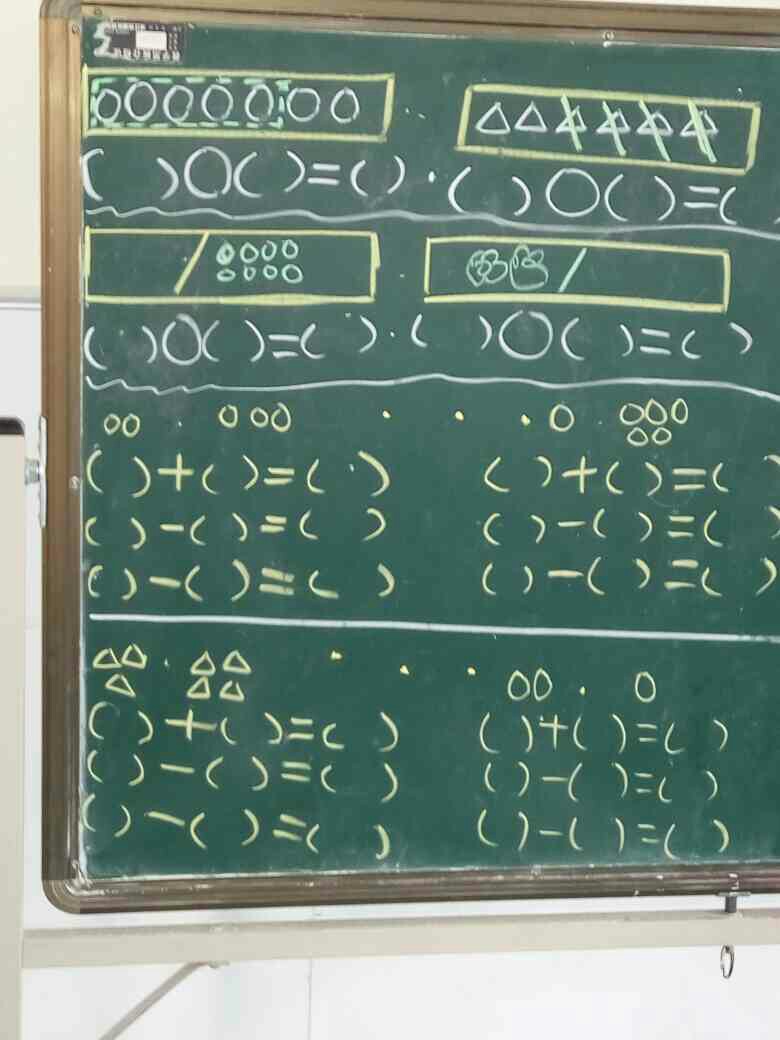 ( )○( )=( ) · ( )○( )=(
( )○( )=( ) · ( )○( )=( )
( )+( )=( ) ( )+( )=(
( )-( )=( ) ( )-( )=( )
( )-( )=( ) ( )-( )=( )
( )+( )=( ) ( )+( )=( )
( )-( )=( ) ( )-( )=( )
( )-( )=( ) ( )-( )=( )